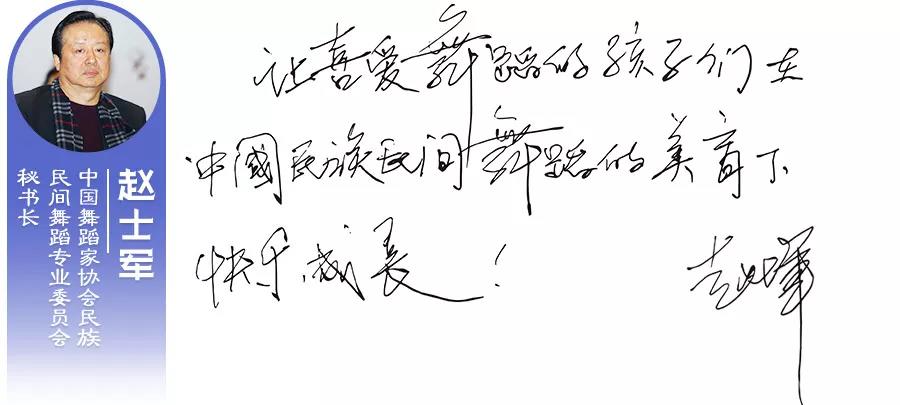 赵士军
中国舞蹈家协会民族
民间舞蹈专业委员会
秘书长
让喜爱舞蹈的孩子们在
中國民族民间舞蹈的美育下
快乐成长！
赵士军